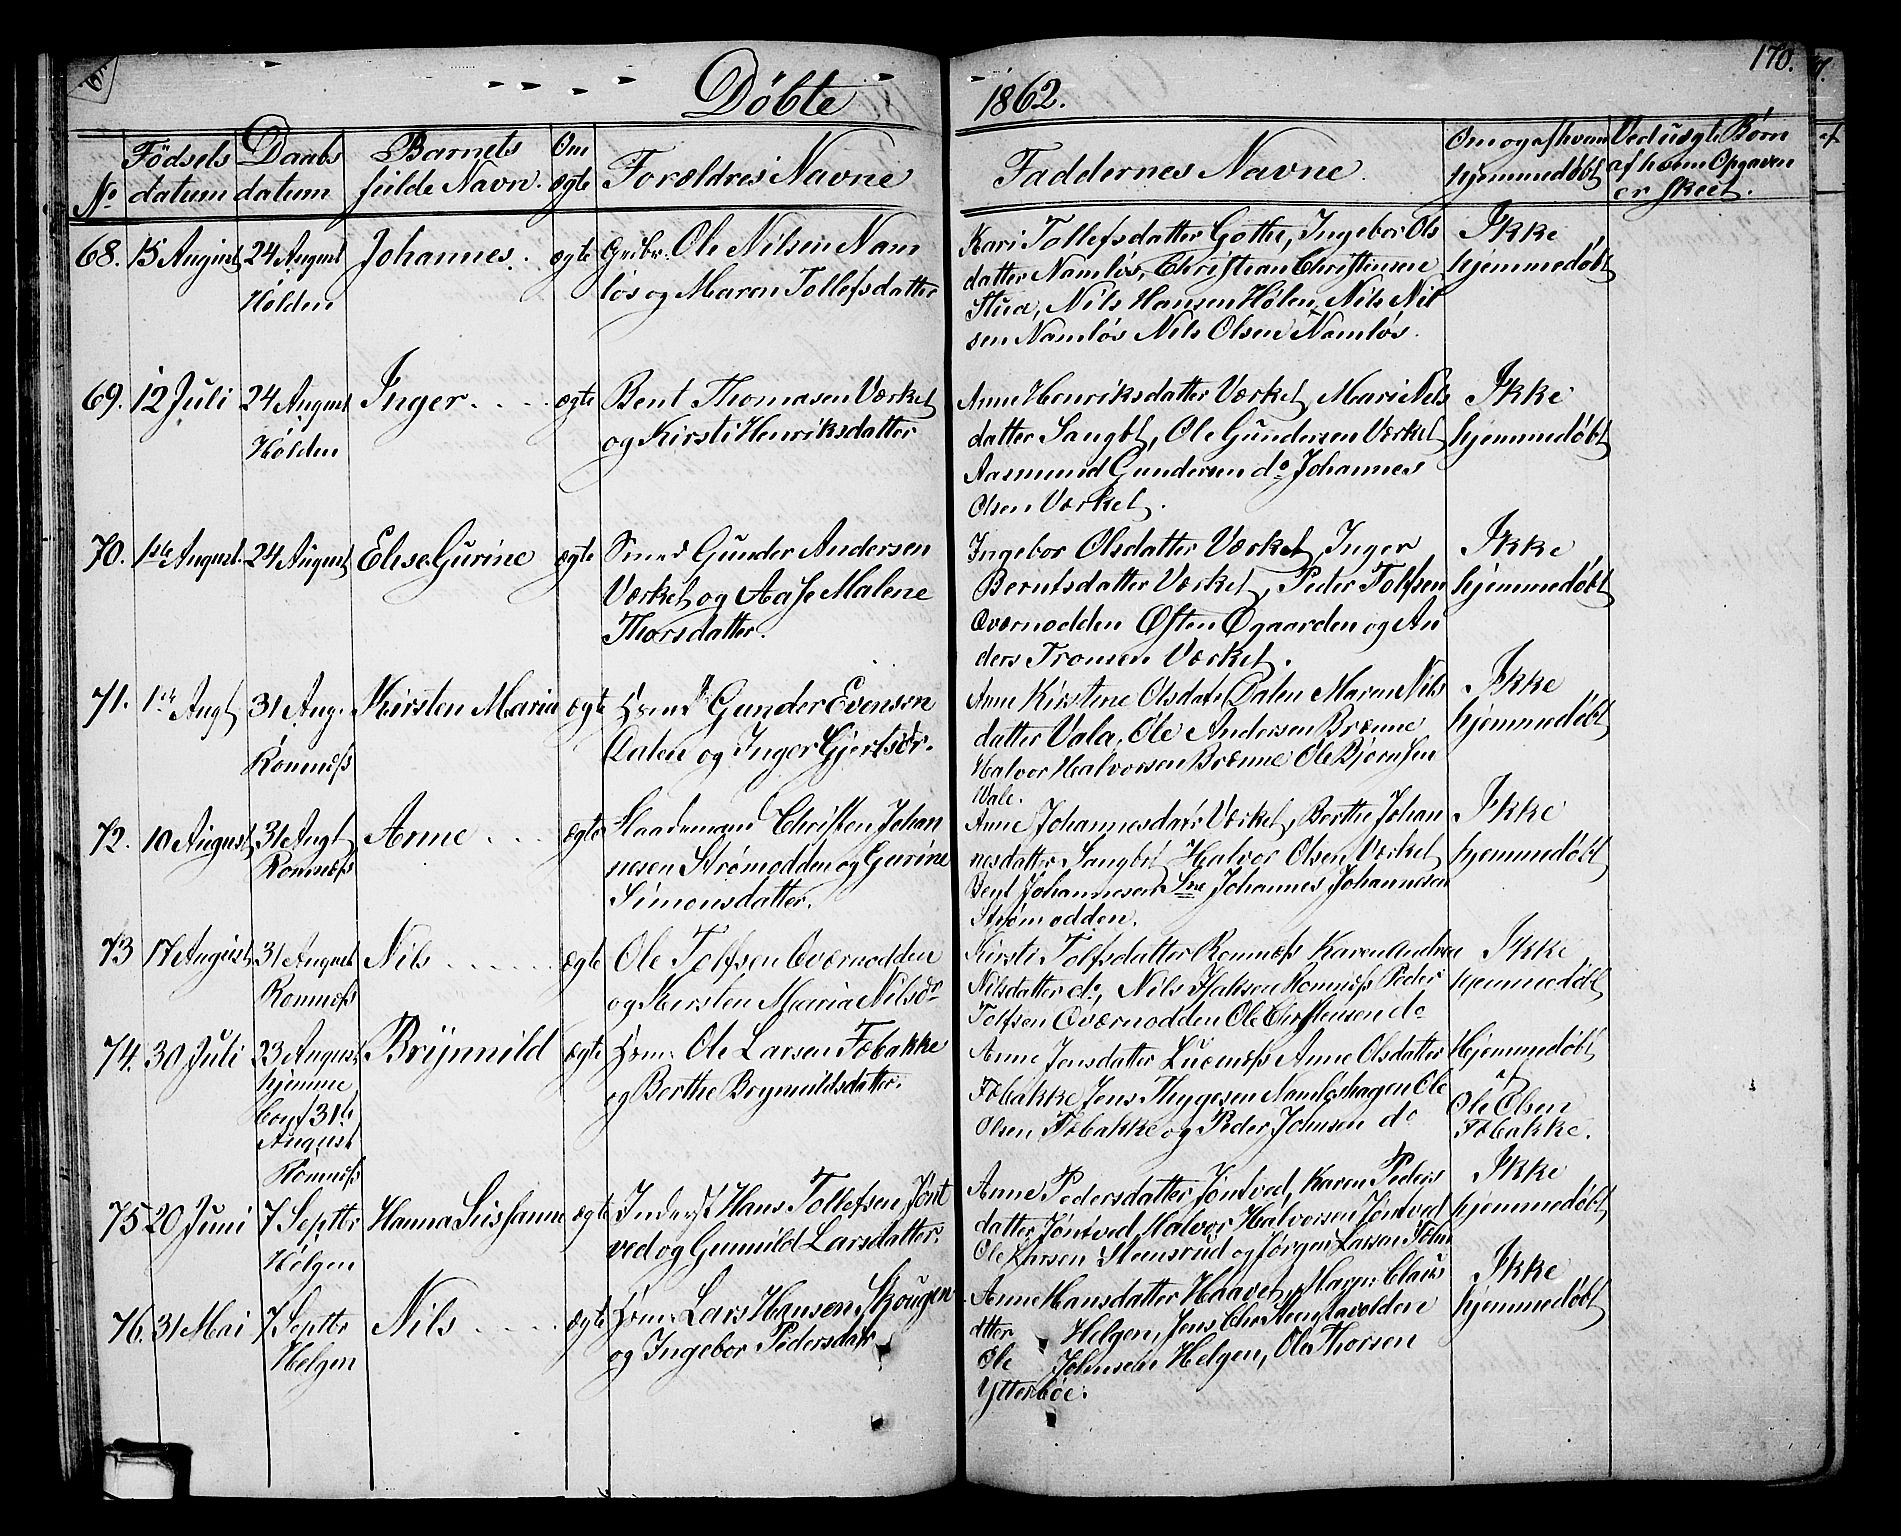 Döbte
1862.
170.
No
Födsels datum
Daabs datum
Barnets fulde Navn.
Om ægte
Forældres Navne
Faddernes Navne.
Om og af hvem hjemmedöbt
Ved uægte Børn af hvem Opgaven er skeet.
68. 15 August 24 August Johannes. ægte Grbr. Ole Nilsen Nam
Hölden lös og Maren Tollefsdatter
Kari Tollefsdatter Gothe, Ingebor Ols
datter Namlös, Christian Christensen
Stua, Nils Hansen Hölen, Nils Nil
sen Namlös Nils Olsen Namlös.
Ikke
hjemmedöbt
69. 12 Juli 24 August Inger ægte Bent Thomasen Værket
Hölden og Kirsti Henriksdatter
Anne Henriksdatter Værket, Mari Nils
datter Langbt, Ole Gundersen Værket
Aasmund Gundersen do Johannes
Olsen Værket.
Ikke
hjemmedöbt
70. 1ste August. 24 August Elise Gurine ægte Smed Gunder Andersen
Værket og Aase Malene
Thorsdatter.
Ingebor Olsdatter Værket, Inger
Berntsdatter Værket, Peder Tolfsen
Oværnodden Østen Øgaarden og An
ders Tronsen Værket.
Ikke
hjemmedöbt
71. 1ste Augt 31 Aug. Kirsten Maria ægte Huusmd Gunder Evensen
Romnæss Dalen og Inger Gjertsdr.
Anne Kirstine Olsdatr Dalen Maren Nils
datter Vala, Ole Andersen Brænne
Halvor Halvorsen Brænne Ole Bjørnsen
Vale.
Ikke
hjemmedöbt
72. 10 August 31 Augt Anne ægte Gaardmand Christen Johan
Romnæss nesen Strömodden og Gurine
Simonsdatter.
Anne Johannesdatr Værket, Berthe Johan
nesdatter Langbt Halvor Olsen Værket
Bent Johannesen Johannes Johannesen
Strömodden.
Ikke
hjemmedöbt
73 17 August 31 August Nils ægte Ole Tolfsen Oværnodden
Romnæss og Kirsten Maria Nilsdr
Kirsti Tolfsdatter Romnæss Karen Andrea
Nilsdatter do, Nils Isaksen Romnæss Peder
Tolfsen Oværnodden Ole Christensen do
Ikke
hjemmedöbt
74. 30 Juli 23 August Brynnild ægte Huusm. Ole Larsen Fobakke
hjemme og Berthe Brynnildsdatter.
Conf 31te
August
Romnæss
Anne Jensdatter Lucenæss Anne Olsdatter
Fobakke Jens Thygesen Namløshagen Ole
Olsen Fobakke og Peder Johnsen do
Hjemmedöbt
af
Ole Olsen
Fobakke.
75 20 Juni 7 Septbr Hanna Susanne ægte Inderst Hans Tollefsen Jönt
Helgen ved og Gunnild Larsdatter.
Anne Pedersdatter Jöntved, Karen Peders
datter Jöntved, Halvor Halvorsen Jöntved
Ole Larsen Steensrud og Jørgen Larsen
Ikke
hjemmedöbt
76. 31 Mai 7 Septbr Nils ægte Huusm. Lars Hansen Skougen
Helgen og Ingebor Pedersdatr
Anne Hansdatter Haavet, Margr. Claus
dtter Helgen, Jens Chr Stenstavolden
Ole Johnsen Helgen, Ole Thorsen
Ytterböe.
Ikke
hjemmedöbt